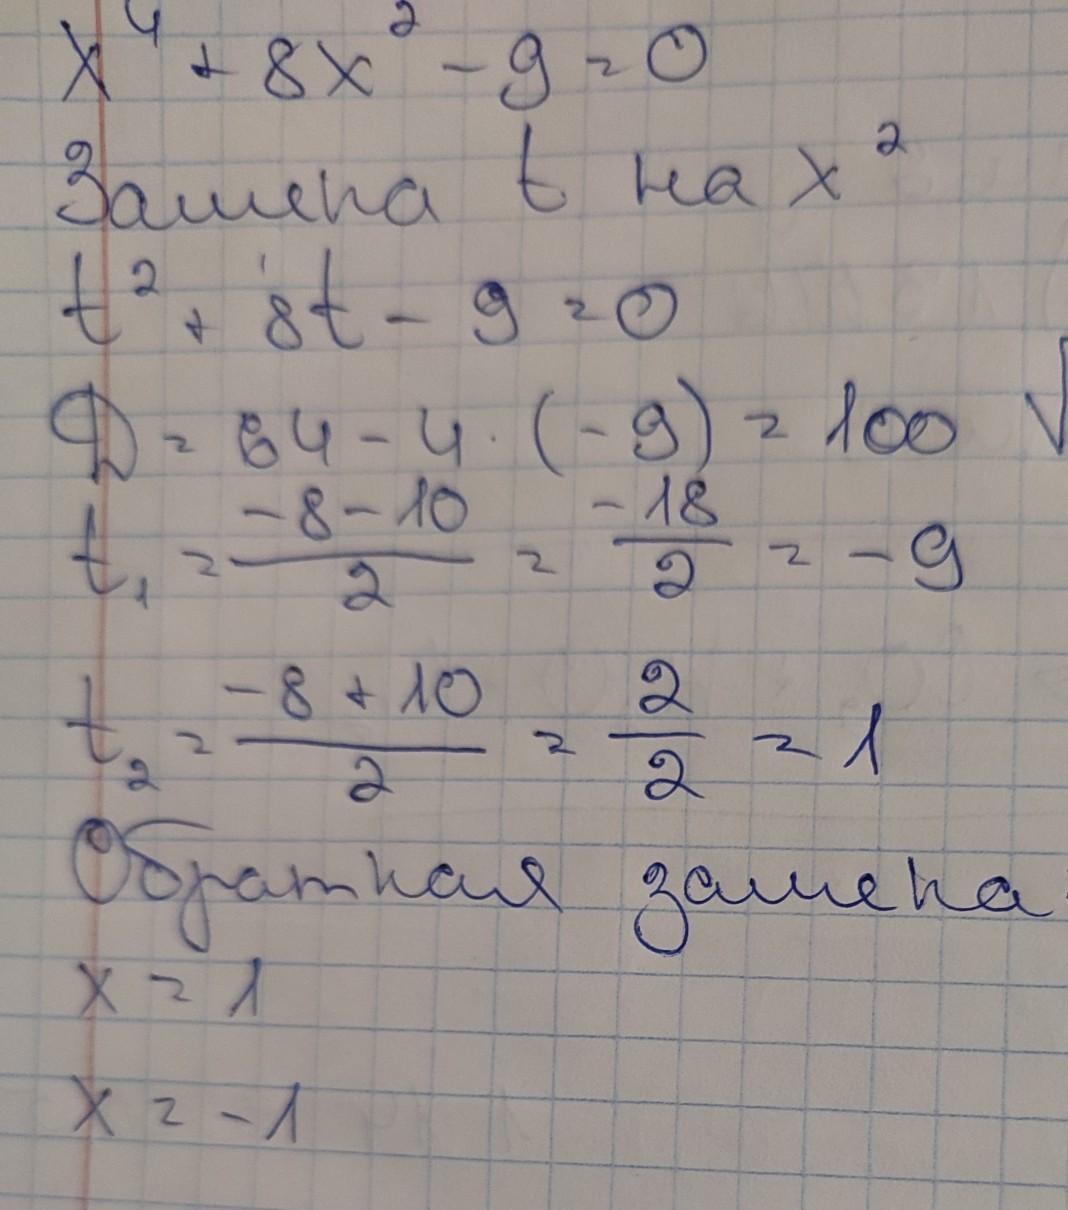 x⁴ + 8x² - 9 = 0
Замена t на x²
t² + 8t - 9 = 0
D = 64 - 4 · (-9) = 100 √
t₁ = (-8-10)/2 = -18/2 = -9
t₂ = (-8+10)/2 = 2/2 = 1
Обратная замена
x = 1
x = -1